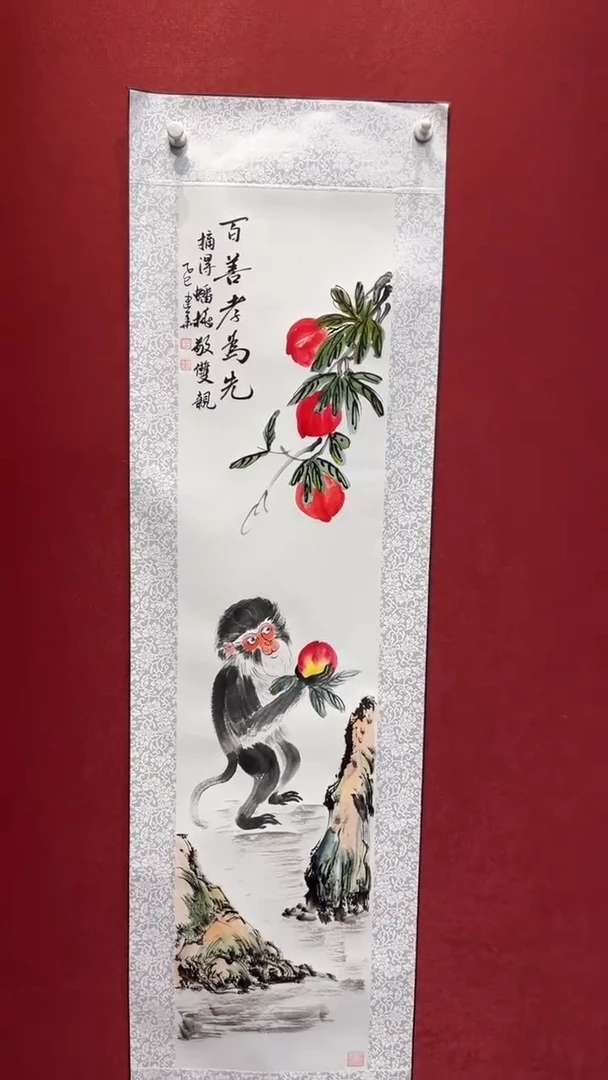 百善孝為先
摘得蟠桃敬雙親
乙巳建華